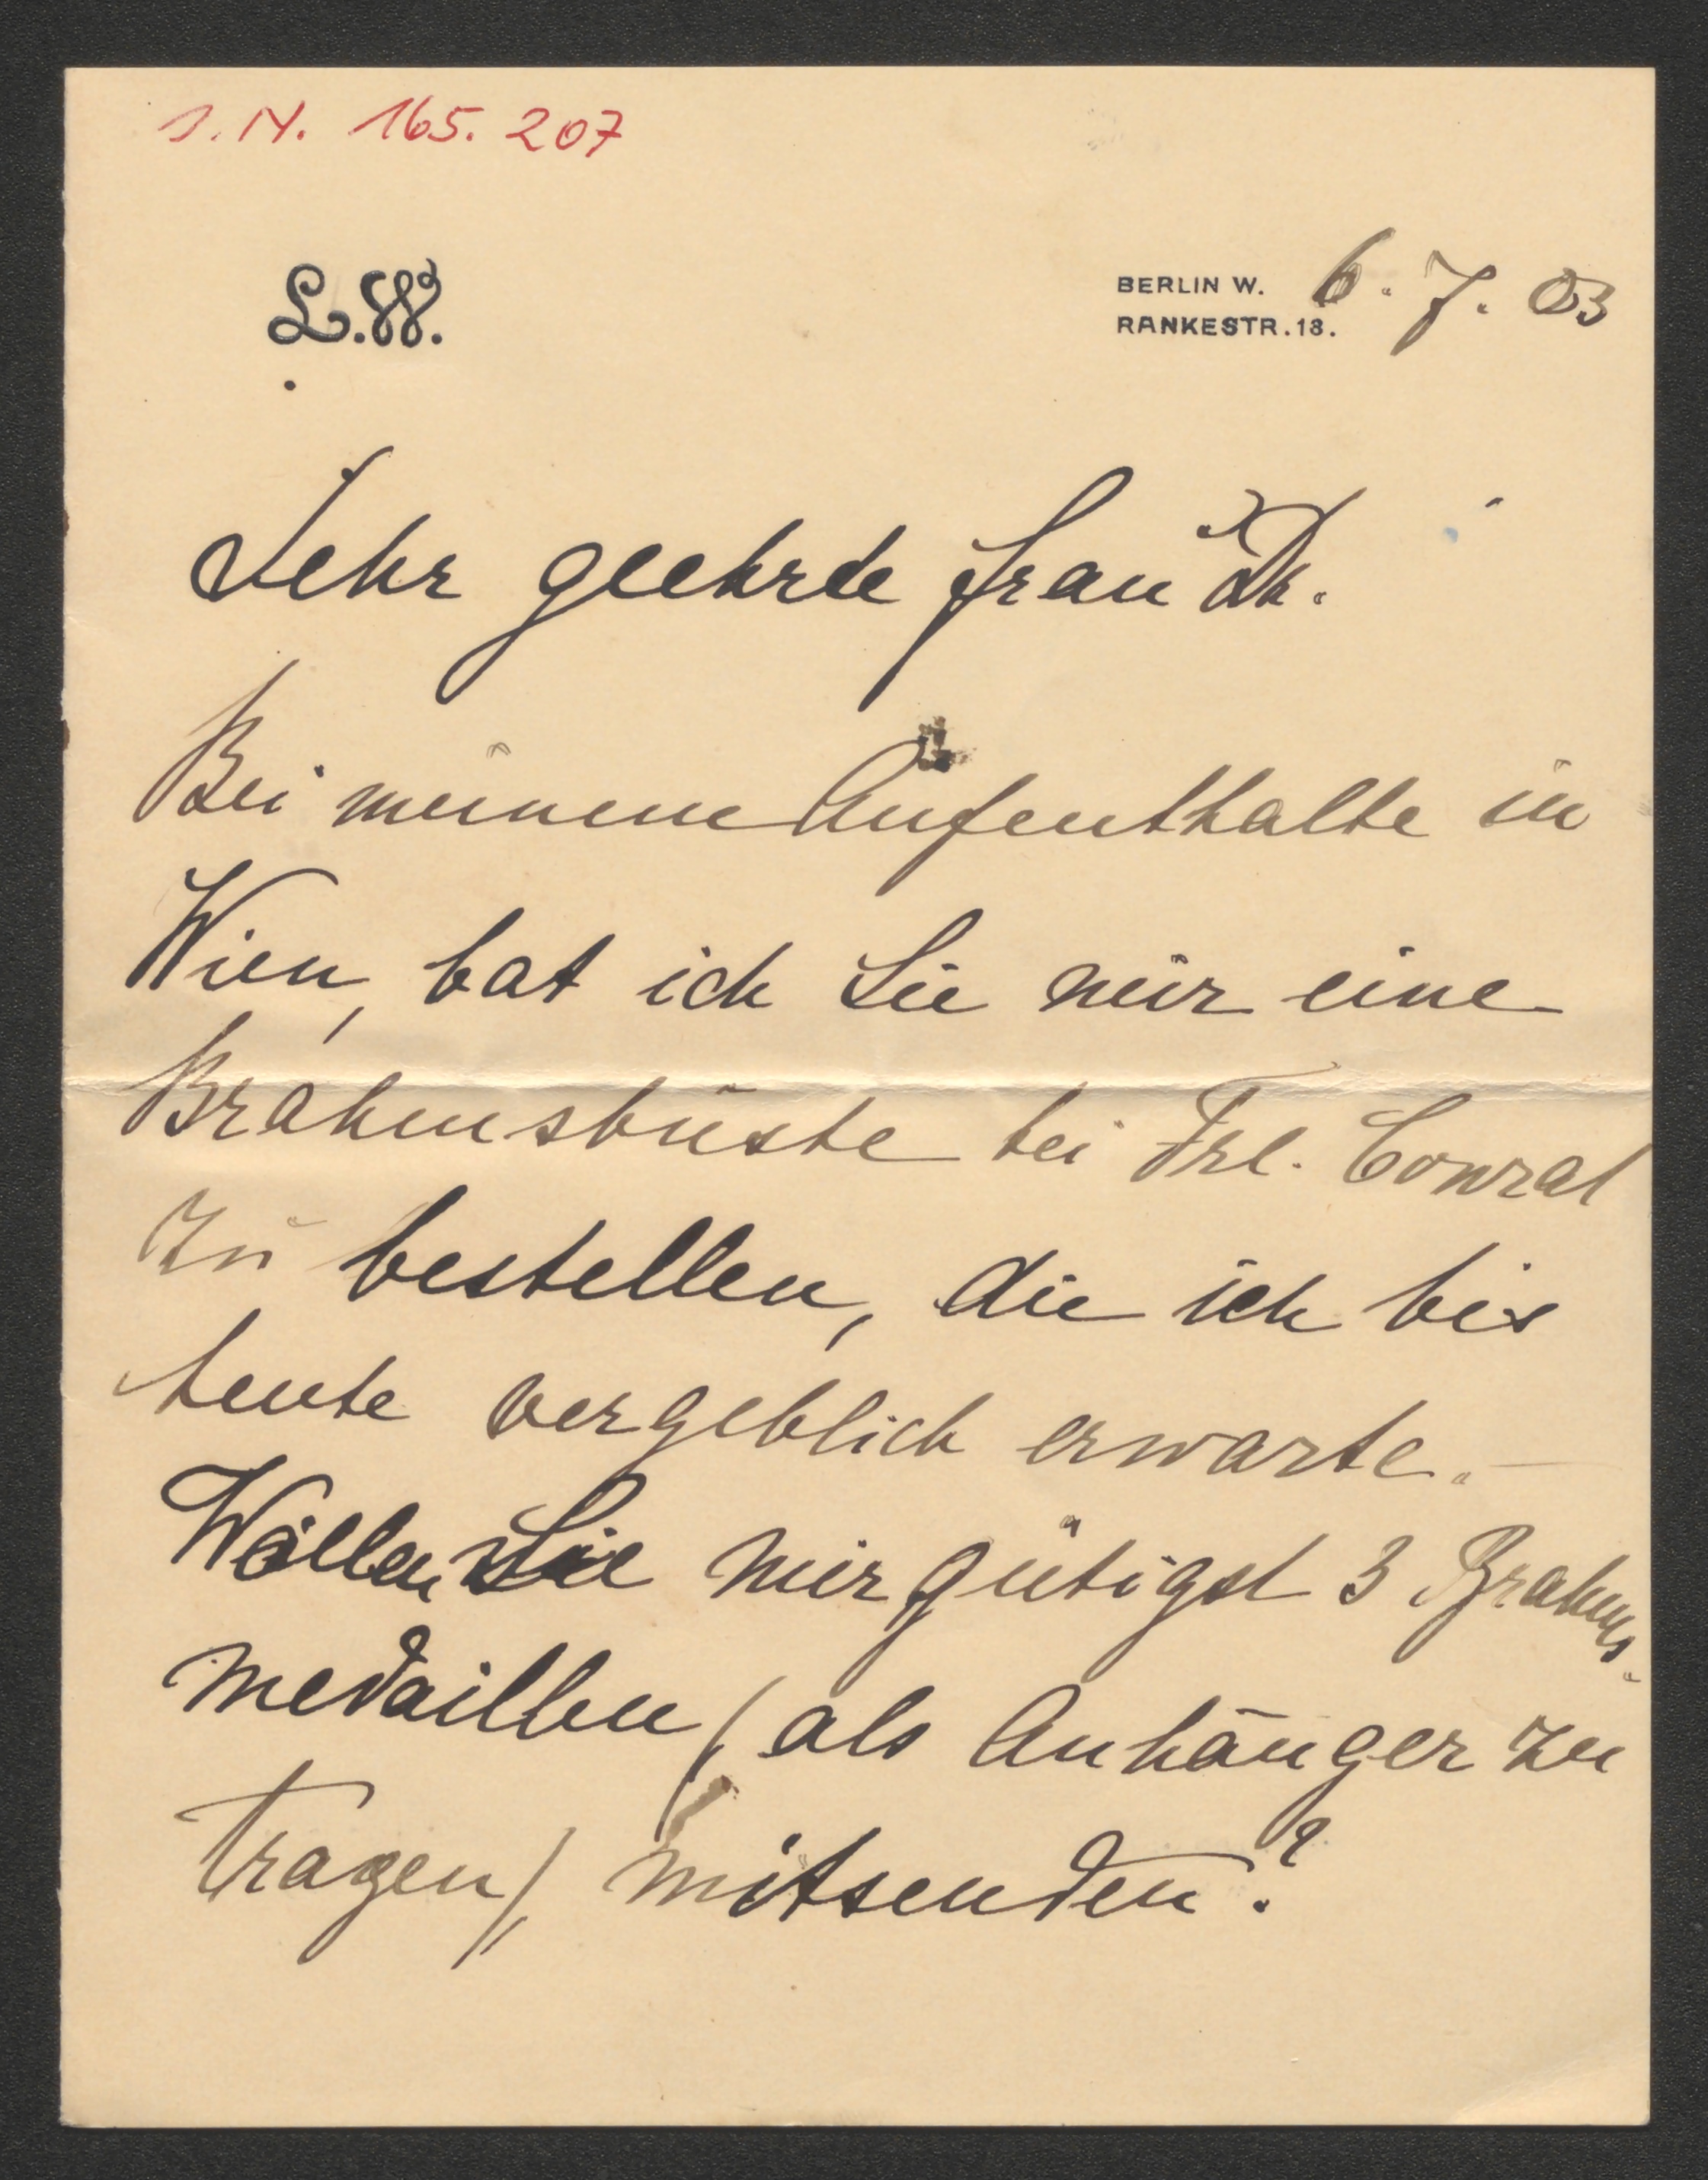 J. N. 165.207
L.W.
BERLIN W. 6. 7. 03
RANKESTR. 18.
Sehr geehrte Frau Dr.
Bei meinem Aufenthalte in
Wien, bat ich Sie mir eine
Brahmsbüste bei Frl. Conrat
zu bestellen, die ich bis
heute vergeblich erwarte. –
Wollen Sie mir gütigst 3 Brahms-
medaillen (als Anhänger zu
tragen), mitsenden?